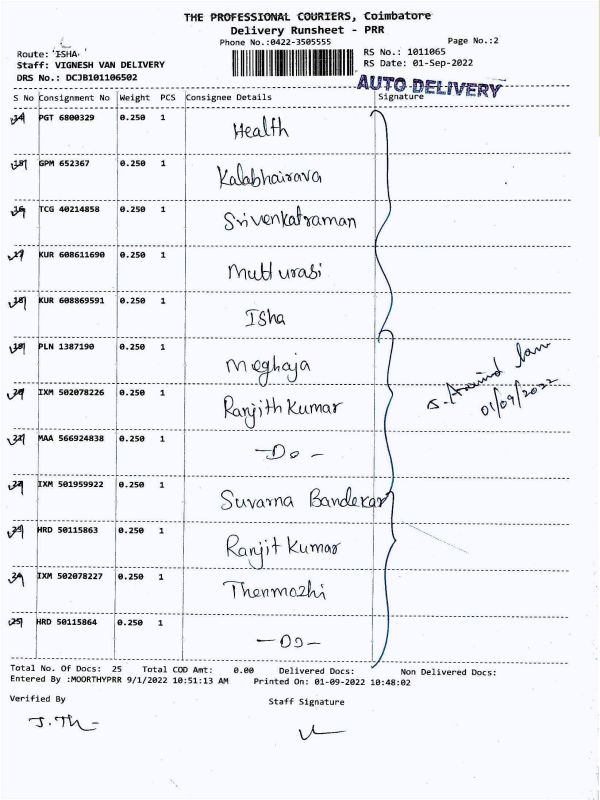 THE PROFESSIONAL COURIERS, Coimbatore
Delivery Runsheet - PRR
Phone No.:0422-3505555
Page No.:2
Route: 'ISHA'
RS No.: 1011065
Staff: VIGNESH VAN DELIVERY
RS Date: 01-Sep-2022
DRS No.: DCJB101106502
AUTO DELIVERY
S No Consignment No Weight PCS Consignee Details Signature
14 PGT 6800329 0.250 1 Health
15 GPM 652367 0.250 1 Kalabhairava
16 TCG 40214858 0.250 1 Srivenkatraman
17 KUR 608611690 0.250 1 Mutturasi
18 KUR 608869591 0.250 1 Isha
19 PLN 1387190 0.250 1 Meghaja
20 IXM 502078226 0.250 1 Ranjith Kumar
21 MAA 566924838 0.250 1 - Do -
22 IXM 501959922 0.250 1 Suvarna Bandekar
23 HRD 50115863 0.250 1 Ranjit Kumar
24 IXM 502078227 0.250 1 Thenmozhi
25 HRD 50115864 0.250 1 - Do -
01/09/2022
Total No. Of Docs: 25 Total COD Amt: 0.00 Delivered Docs: Non Delivered Docs:
Entered By :MOORTHYPRR 9/1/2022 10:51:13 AM Printed On: 01-09-2022 10:48:02
Verified By
Staff Signature